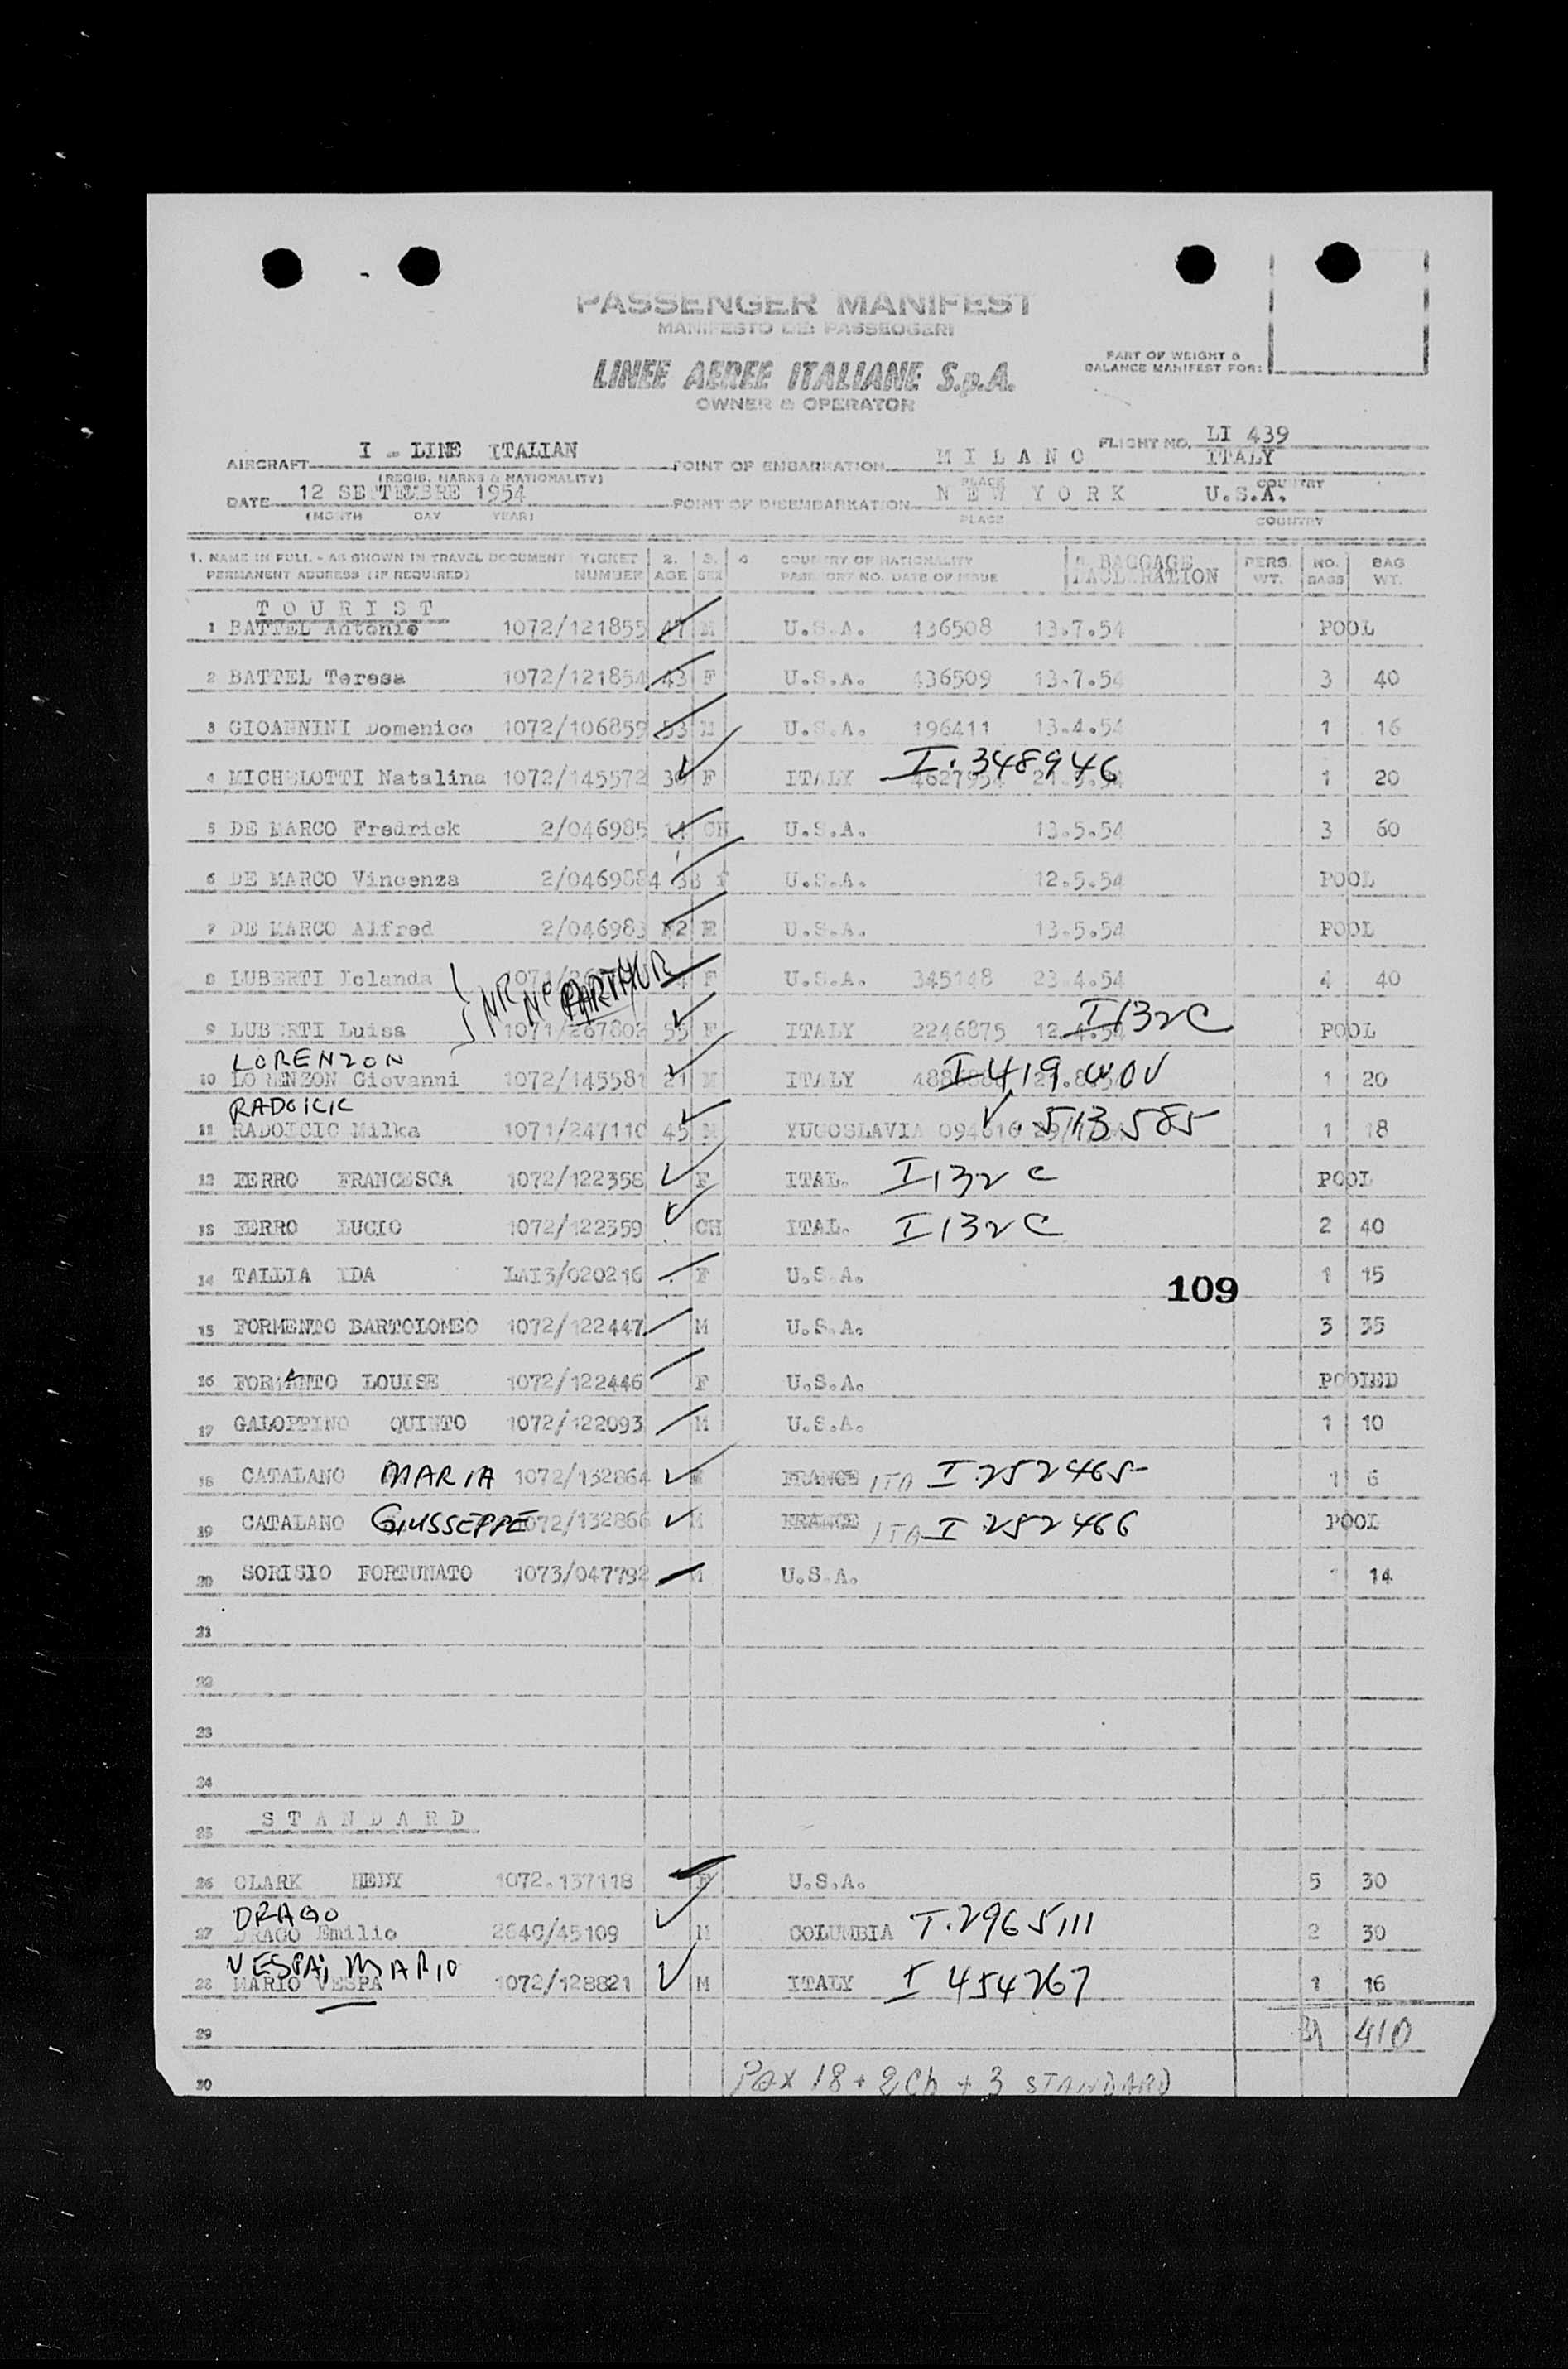 PASSENGER MANIFEST
MANIFESTO DEI PASSEGGERI
LINEE AEREE ITALIANE S.p.A.
OWNER & OPERATOR
PART OF WEIGHT &
BALANCE MANIFEST FOR:
AIRCRAFT I - LINE ITALIAN POINT OF EMBARKATION M I L A N O FLIGHT NO. LI 439
(REGIS. MARKS & NATIONALITY) PLACE ITALY COUNTRY
DATE 12 SETTEMBRE 1954 POINT OF DISEMBARKATION N E W Y O R K U.S.A.
(MONTH DAY YEAR) PLACE COUNTRY
1. NAME IN FULL - AS SHOWN IN TRAVEL DOCUMENT TICKET 2. 3. 4 COUNTRY OF NATIONALITY BAGGAGE PERS. NO. BAG
PERMANENT ADDRESS (IF REQUIRED) NUMBER AGE SEX PASSPORT NO. DATE OF ISSUE DECLARATION WT. BAGS WT.
T O U R I S T
1 BATTEL Antonio 1072/121855 47 M U.S.A. 436508 13.7.54 POOL
2 BATTEL Teresa 1072/121854 43 F U.S.A. 436509 13.7.54 3 40
3 GIOANNINI Domenico 1072/106859 53 M U.S.A. 196411 13.4.54 1 16
I.348946
4 MICHELOTTI Natalina 1072/145572 F ITALY 1 20
5 DE MARCO Fredrick 2/046985 14 CH U.S.A. 13.5.54 3 60
6 DE MARCO Vincenza 2/046984 38 F U.S.A. 12.5.54 POOL
7 DE MARCO Alfred 2/046983 M U.S.A. 13.5.54 POOL
8 LUBERTI Iolanda F U.S.A. 345148 23.4.54 4 40
9 LUBERTI Luisa 1071/267802 55 F ITALY 2246875 12.4.54 I132C POOL
LORENZON
10 LORENZON Giovanni 1072/145581 21 M ITALY I419 1 20
RADOICIC
11 RADOICIC Milka 1071/247110 45 M YUGOSLAVIA 513585 1 18
12 FERRO FRANCESCA 1072/122358 F ITAL. I132 C POOL
13 FERRO LUCIO 1072/122359 CH ITAL. I132 C 2 40
14 TALLIA IDA LAI3/020216 F U.S.A. 1 15
109
15 FORMENTO BARTOLOMEO 1072/122447 M U.S.A. 3 35
16 LOUISE 1072/122446 F U.S.A. POOLED
17 GALOPPINO QUINTO 1072/122093 M U.S.A. 1 10
18 CATALANO MARIA 1072/132864 FRANCE ITA I 252465 1 6
19 CATALANO GIUSSEPPE 1072/132866 M FRANCE ITA I 252466 POOL
20 SORISIO FORTUNATO 1073/047792 M U.S.A. 1 14
21
22
23
24
S T A N D A R D
25
26 CLARK HEDY 1072.137118 F U.S.A. 5 30
DRAGO
27 DRAGO Emilio 2640/45109 M COLUMBIA I.2965111 2 30
VESPA, MARIO
28 MARIO VESPA 1072/128821 M ITALY I 454767 1 16
29 31 410
30 Pax 18 + 2 Ch + 3 STANDARD